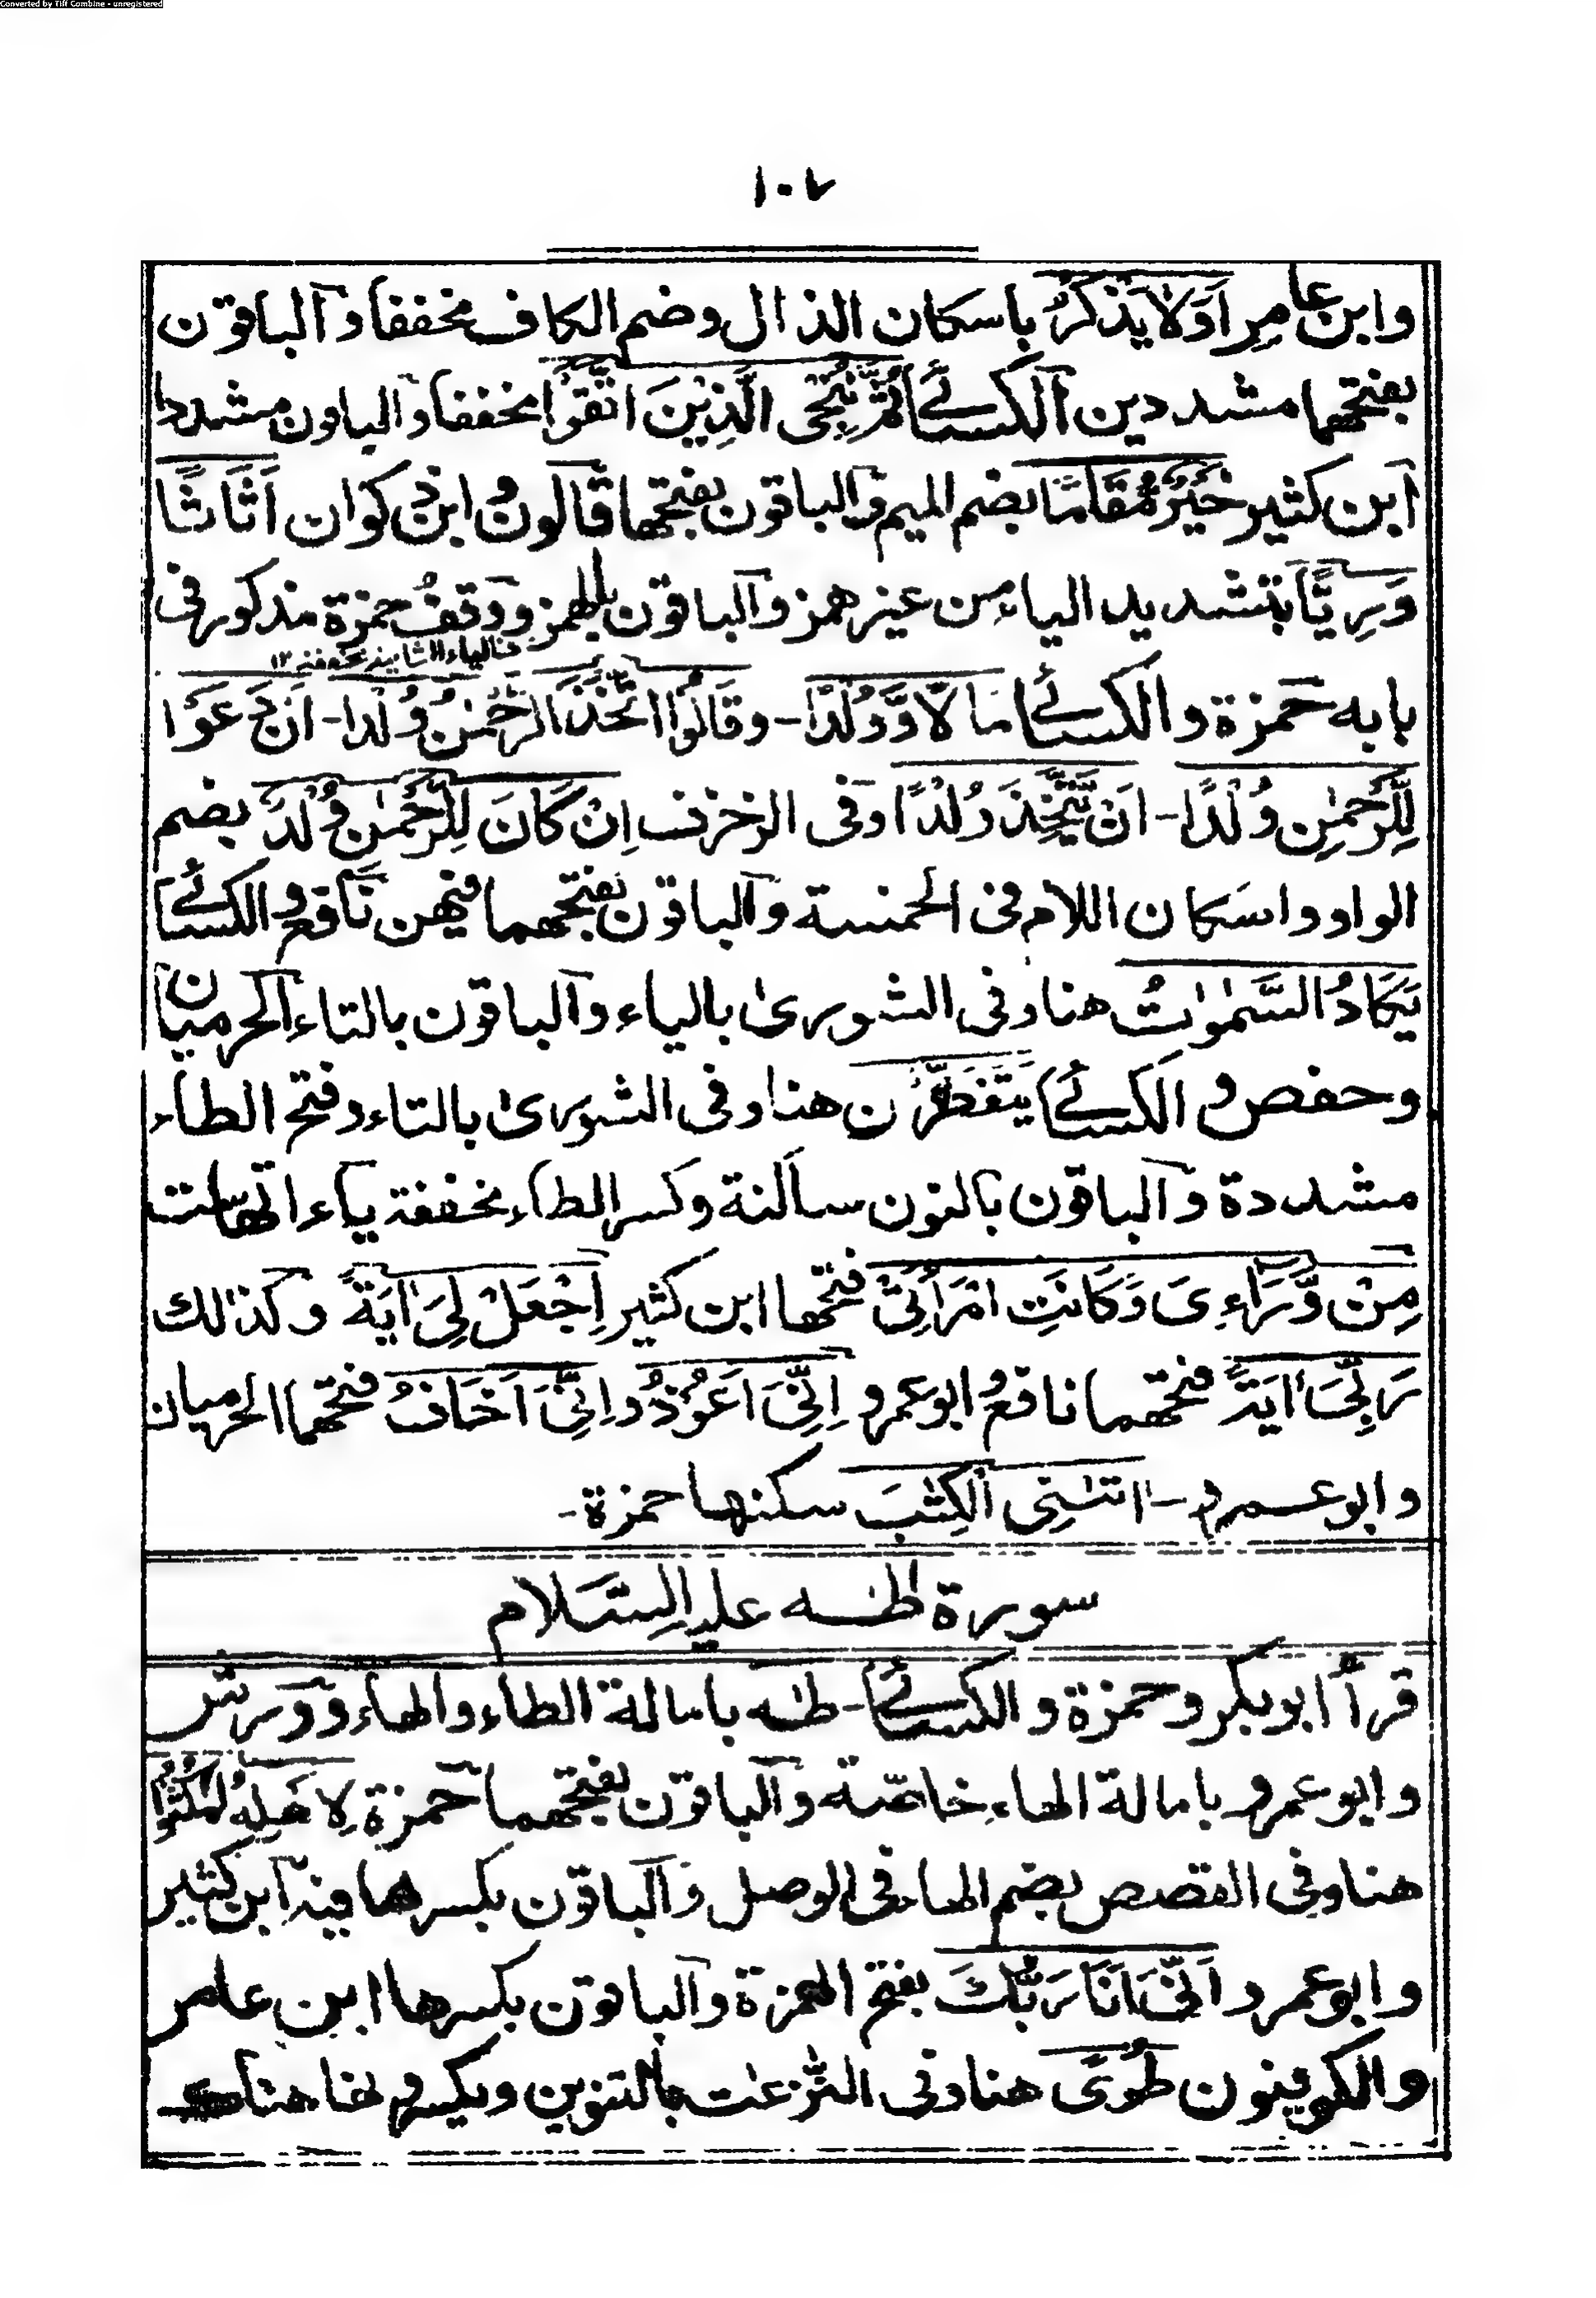 Converted by Tiff Combine - unregistered
١٠٧
وابن عامر اَوَلَا يَذْكُرُ باسكان الذال وضم الكاف مخففا والباقون
بفتحهما مشددين الكسائے ثُمَّ نُنْجِى الَّذِيْنَ اتَّقَوْا مخففا والباقون مشددا
ابن كثير خَيْرٌ مُّقَامًا بضم الميم والباقون بفتحها قالون وابن ذكوان اَثَاثًا
وَرِيًّا بتشديد الياء من غير همز والباقون بالهمز ووقف حمزة مذكور فى
بابه حمزة والكسائے مالًا وَّوُلْدًا - وقَالُوا اتَّخَذَ الرَّحْمٰنُ وُلْدا - اَنْ دَعَوْا
لِلرَّحْمٰنِ وُلْدًا - اَنْ يَّتَّخِذَ وُلْدًا وفى الزخرف اِنْ كَانَ لِلرَّحْمٰنِ وُلْدٌ بضم
الواو واسكان اللام فى الخمسة والباقون بفتحهما فيهن نافع والكسائے
يَكَادُ السَّمٰوٰتُ هنا وفى الشورىٰ بالياء والباقون بالتاء الحرميان
وحفص والكسائے يَتَفَطَّرْنَ هنا وفى الشورىٰ بالتاء وفتح الطاء
مشددة والباقون بالنون ساكنة وكسر الطاء مخففة ياءاتها ست
مِنْ وَّرَاءِىَ وَكَانَتِ امْرَأَتِىْ فتحها ابن كثير اِجْعَلْ لِىَ اٰيَةً وكذلك
رَبِّىَ اٰيَةً فتحهما نافع وابوعمرو اِنِّىَ اَعُوْذُ واِنِّىَ اَخَافُ فتحهما الحرميان
وابوعمرو - اٰتٰنِىَ الْكِتٰبَ سكنها حمزة -
سورة طٰه عليه السلام
قرأ ابوبكر وحمزة والكسائے - طٰه بامالة الطاء والهاء وورش
وابوعمرو بامالة الهاء خاصّة والباقون بفتحهما حمزة لِاَهْلِهُ امْكُثُوْا
هنا وفى القصص بضم الهاء فى الوصل والباقون بكسرها فيه ابن كثير
وابوعمرو اَنِّىَ اَنَا رَبُّكَ بفتح الهمزة والباقون بكسرها ابن عامر
والكوفيون طُوًى هنا وفى النّٰزعٰت بالتنوين ويكسرونها هنا